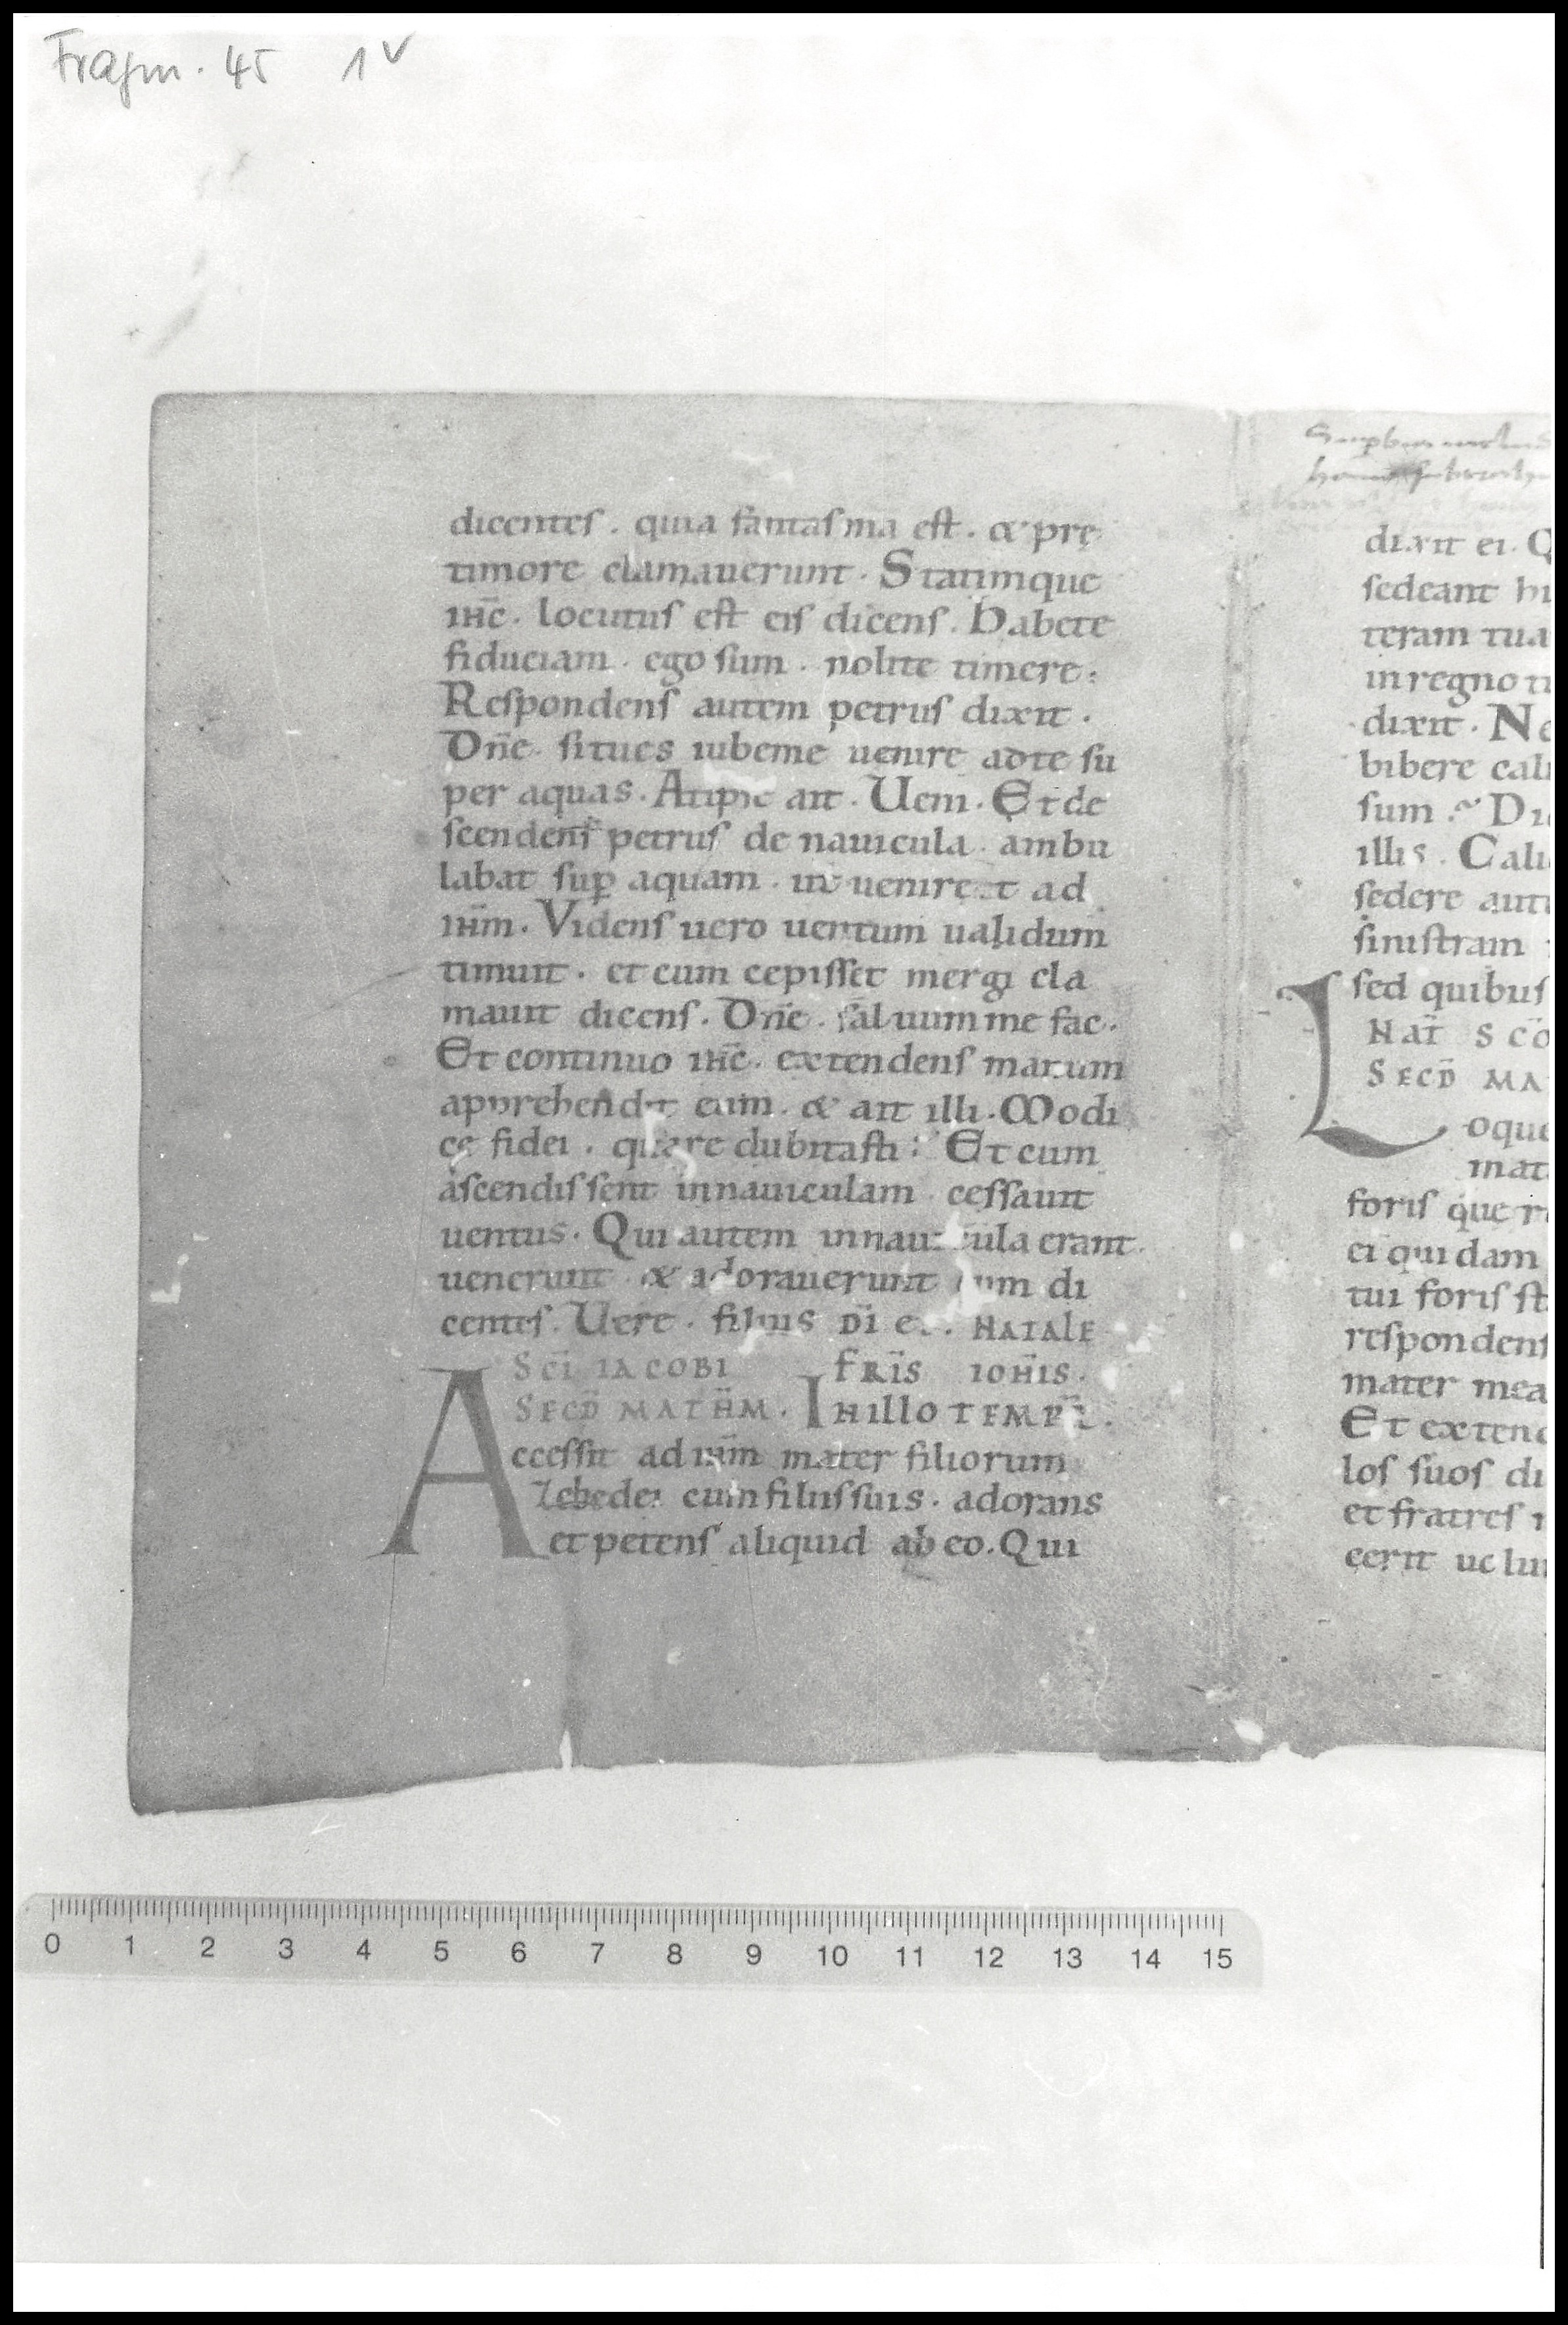 Fragm. 45 1v
dicentes. quia fantasma est. & pre
timore clamauerunt. Statimque
ihc̄. locutus est eis dicens. Habete
fiduciam. ego sum. nolite timere:
Respondens autem petrus dixit.
Dn̄e. si tu es iube me uenire ad te su
per aquas. At ipse ait. Ueni. Et de
scendens petrus de nauicula. ambu
labat sup̱ aquam. ut ueniret ad
ihm̄. Videns uero uentum ualidum
timuit. et cum cepisset mergi cla
mauit dicens. Dn̄e. saluum me fac.
Et continuo ihc̄. extendens manum
apprehendit eum. & ait illi. Modi
ce fidei. quare dubitasti? Et cum
ascendissent in nauiculam cessauit
uentus. Qui autem in nauicula erant
uenerunt & adorauerunt eum di
centes. Uere. filius dī e. NATALE
SCĪ IACOBI FRĪS IOHĪS.
SECD̄ MATHM̄. IN ILLO TEMPR̄.
Accessit ad ihm̄ mater filiorum
Zebedei cum filiis suis. adorans
et petens aliquid ab eo. Qui
dixit ei. Q
sedeant hi
teram tua
in regno t
dixit. Ne
bibere cali
sum? Di
illis. Cali
sedere aut
sinistram
sed quibus
NAT̄ SCO
SECD̄ MA
Loque
mat
foris que r
ei quidam
tui foris st
respondens
mater mea
Et extend
los suos di
et fratres
cerit uolun
0 1 2 3 4 5 6 7 8 9 10 11 12 13 14 15